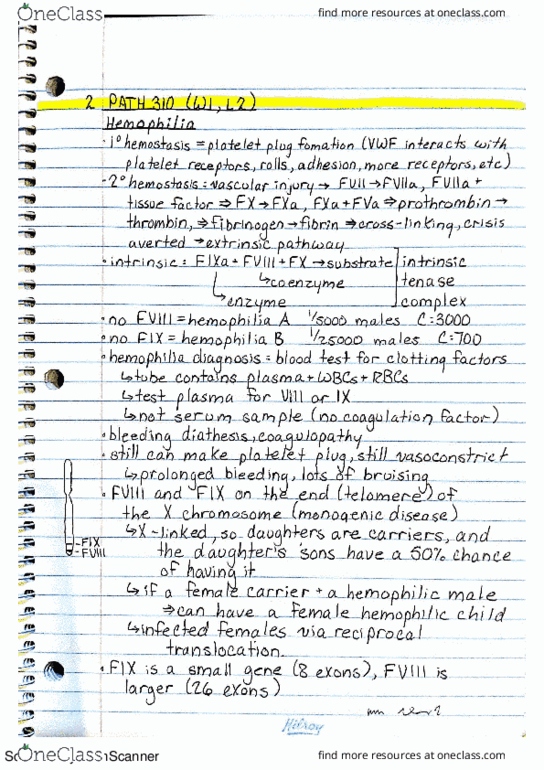 OneClass find more resources at oneclass.com
2 PATH 310 (W1, L2)
Hemophilia
· 1° hemostasis = platelet plug fomation (VWF interacts with
platelet receptors, rolls, adhesion, more receptors, etc)
· 2° hemostasis: vascular injury → FVII → FVIIa, FVIIa +
tissue factor ⇒ FX → FXa, FXa + FVa ⇒ prothrombin →
thrombin, ⇒ fibrinogen → fibrin ⇒ cross-linking, crisis
averted → extrinsic pathway
· intrinsic: FIXa + FVIII + FX → substrate intrinsic
↳ coenzyme tenase
↳ enzyme complex
· no FVIII = hemophilia A 1/5000 males C: 3000
· no FIX = hemophilia B 1/25000 males C: 700
· hemophilia diagnosis = blood test for clotting factors
↳ tube contains plasma + WBCs + RBCs
↳ test plasma for VIII or IX
↳ not serum sample (no coagulation factor)
· bleeding diathesis, coagulopathy
· still can make platelet plug, still vasoconstrict
↳ prolonged bleeding, lots of bruising
· FVIII and FIX on the end (telomere) of
the X chromosome (monogenic disease)
↳ X-linked, so daughters are carriers, and
-FIX the daughter's sons have a 50% chance
-FVIII of having it
↳ if a female carrier + a hemophilic male
⇒ can have a female hemophilic child
↳ infected females via reciprocal
translocation.
· FIX is a small gene (8 exons), FVIII is
larger (26 exons)
Hilroy
OneClass Scanner find more resources at oneclass.com